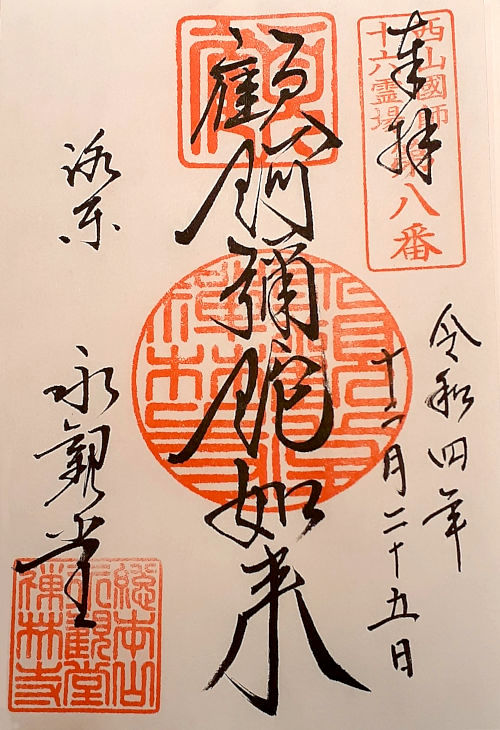 奉拝
西山國師
十六霊場
第八番
令和四年
十二月二十五日
顧阿彌陀如来
洛東
永觀堂
總本山
永觀堂
禪林寺